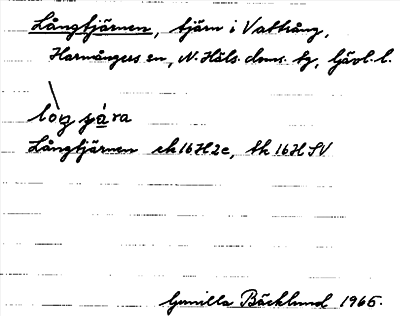 Långtjärnen, tjärn i Vattrång,
Harmångers sn, N. Häls. doms. tg, Gävl. l.
Långtjärnen ek 16H2c, tk 16H SV
Gunilla Bäcklund 1966.